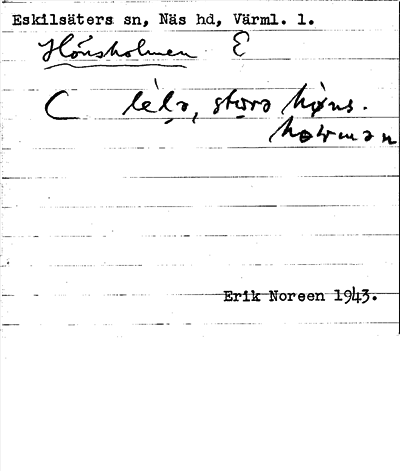 Eskilsäters sn, Näs hd, Värml. l.
Hönsholmen E
C lèlə, stora høns.
holmən
Erik Noreen 1943.